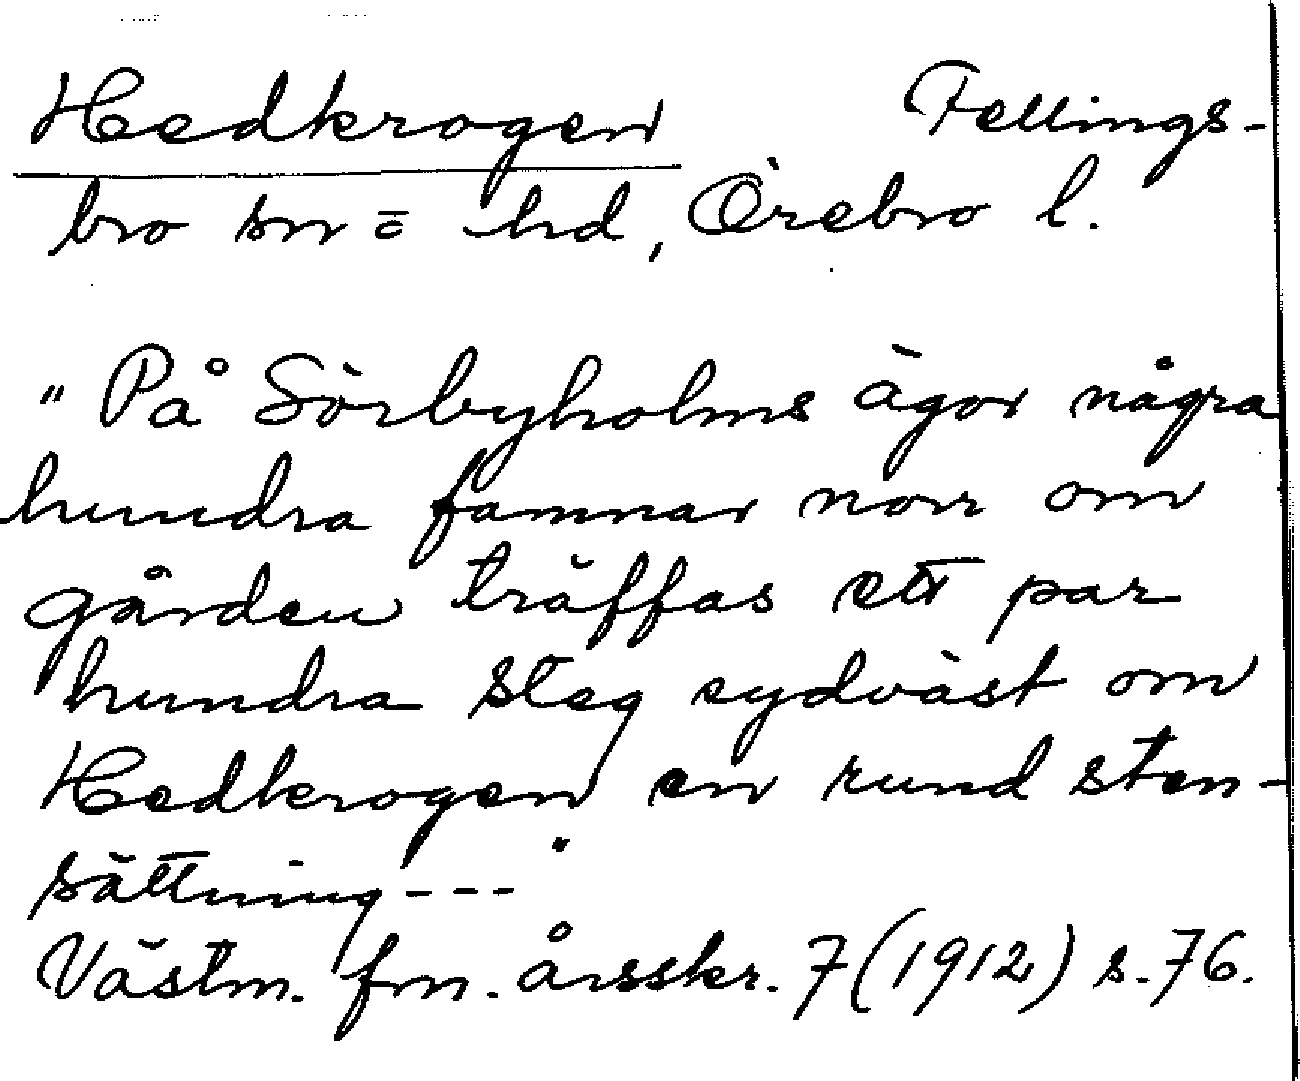 Hedkrogen Fellings-
bro sn o. hd, Örebro l.
"På Sörbyholms ägor några
hundra famnar norr om
gården träffas ett par
hundra steg sydväst om
Hedkrogen en rund sten-
sättning ---"
Västm. fm. årsskr. 7 (1912) s. 76.